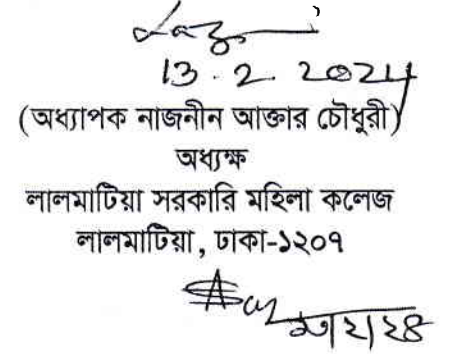 13.2.2024
(অধ্যাপক নাজনীন আক্তার চৌধুরী)
অধ্যক্ষ
লালমাটিয়া সরকারি মহিলা কলেজ
লালমাটিয়া, ঢাকা-১২০৭